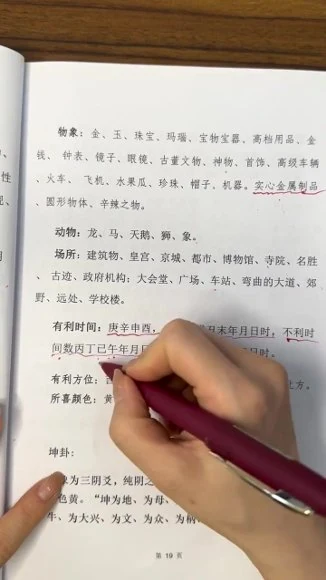 物象：金、玉、珠宝、玛瑙、宝物宝器、高档用品、金
钱、 钟表、镜子、眼镜、古董文物、神物、首饰、高级车辆
、火车、 飞机、水果瓜、珍珠、帽子、机器。实心金属制品
、圆形物体、辛辣之物。
动物：龙、马、天鹅、狮、象。
场所：建筑物、皇宫、京城、都市、博物馆、寺院、名胜
、古迹、政府机构；大会堂、广场、车站、弯曲的大道、郊
野、远处、学校楼。
有利时间：庚辛申酉，丑末年月日时，不利时
间数丙丁己午年月日时。
有利方位：处方。
所喜颜色：黄
坤卦：
为三阴爻，纯阴之
色黄。“坤为地、为母、
牛、为大兴、为文、为众、为柄
第 19 页